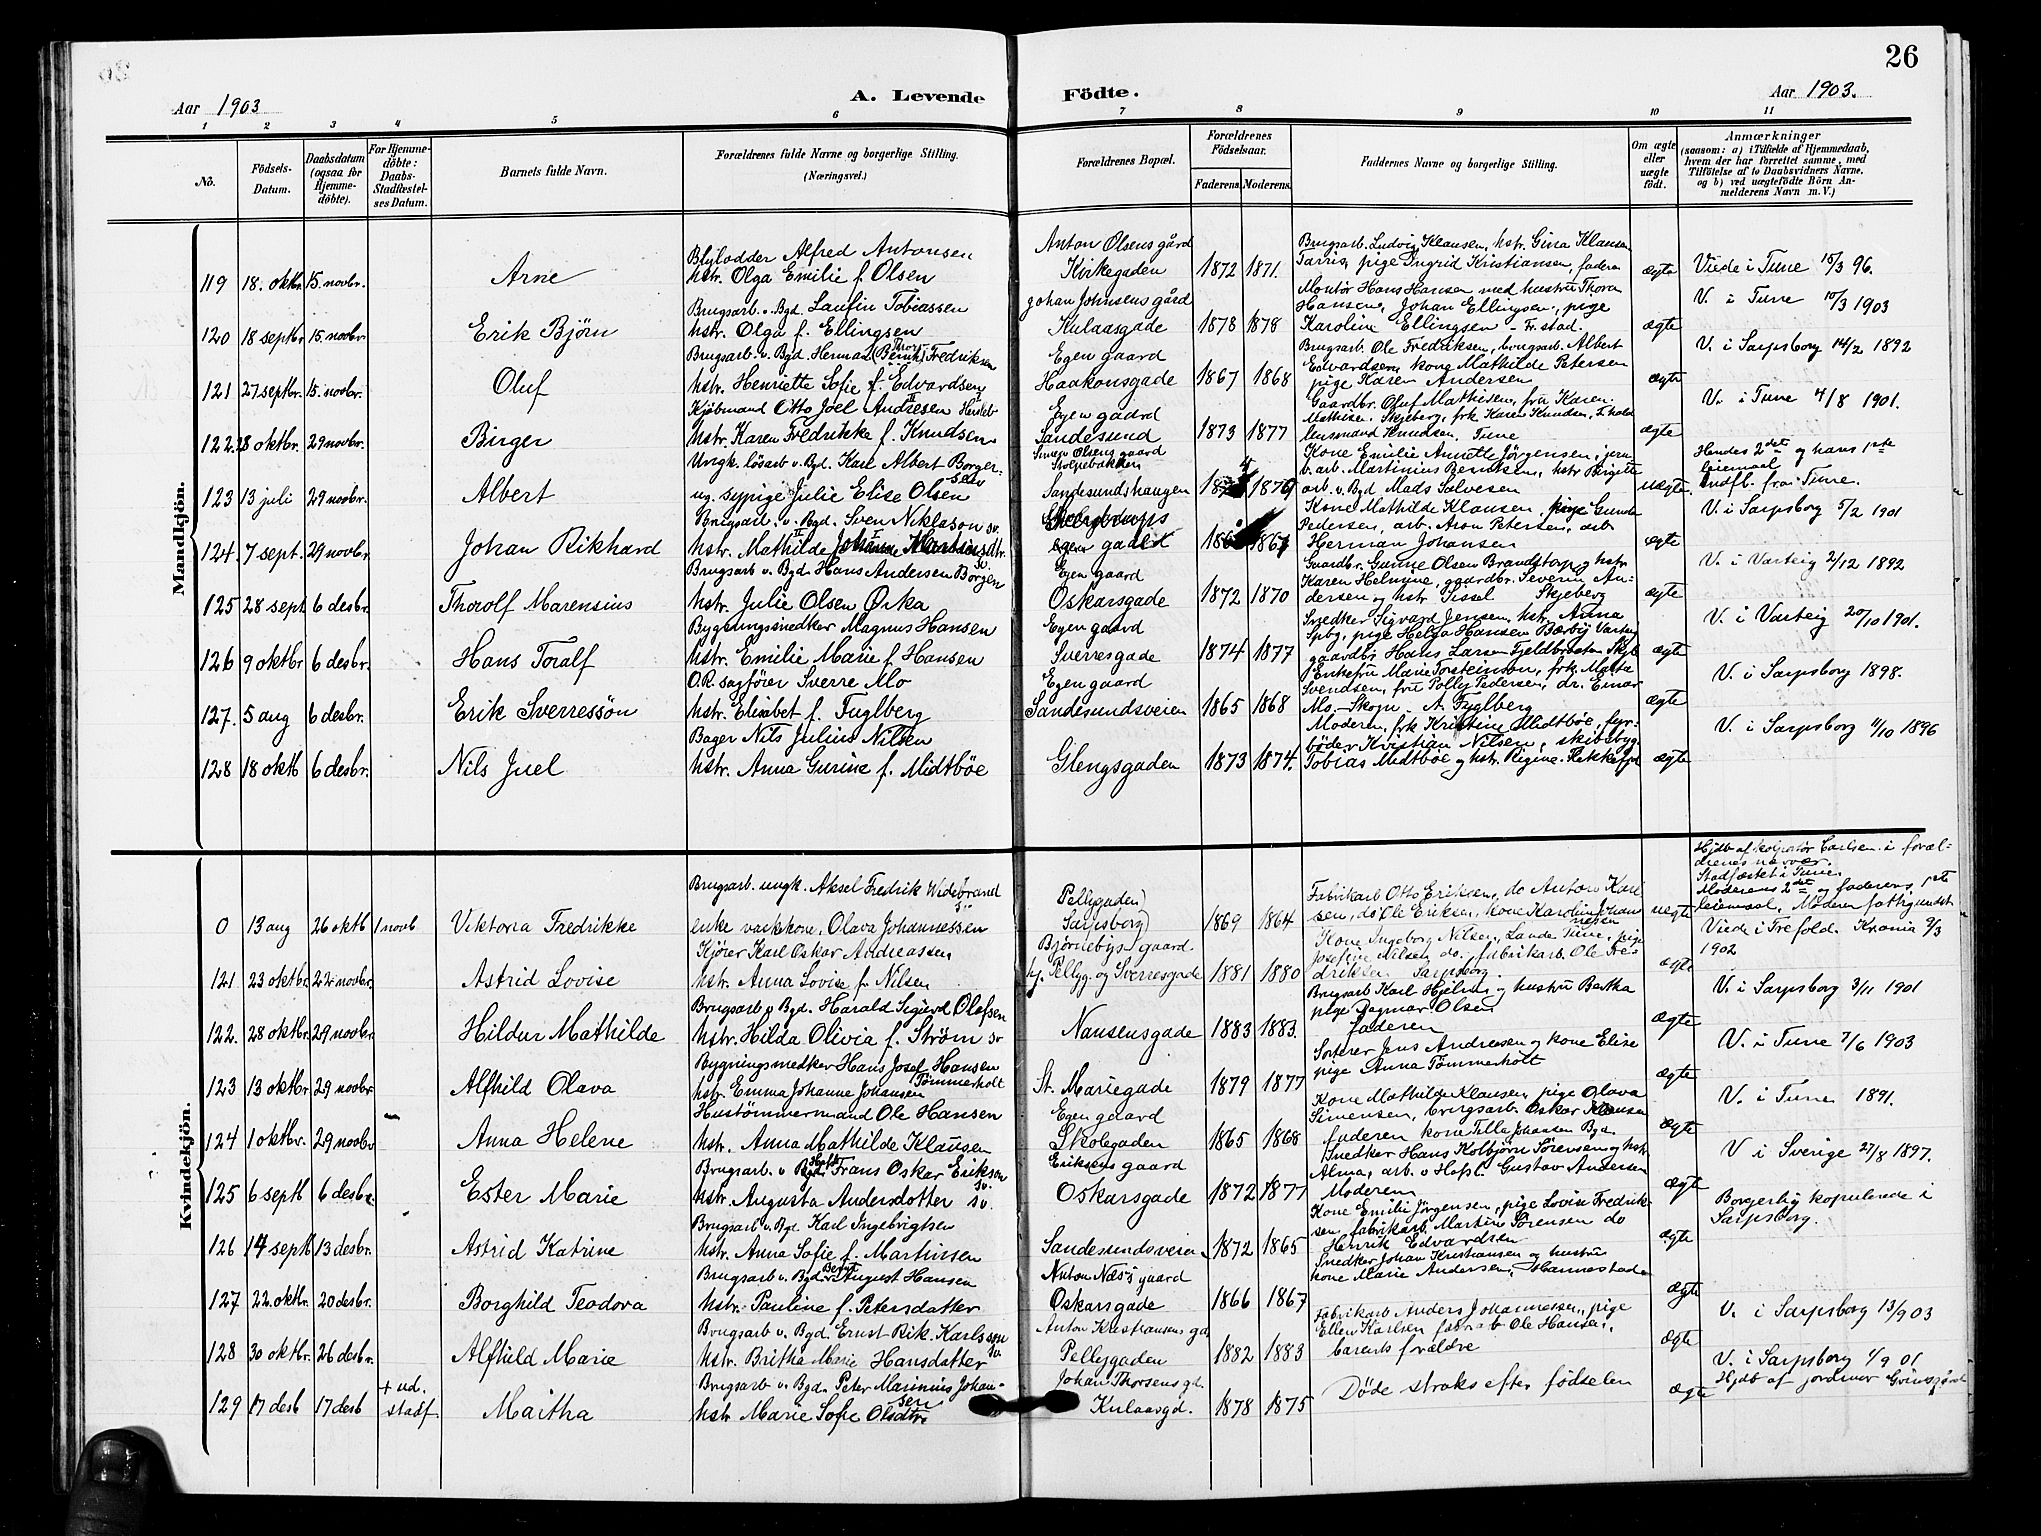 26
Aar 1903
A. Levende Födte.
Aar 1903.
1 2 3 4 5 6 7 8 9 10 11
No.
Födsels-
Datum.
Daabsdatum
(ogsaa for
Hjemme-
döbte).
For Hjemme-
döbte:
Daabs-
Stadfæstel-
ses Datum.
Barnets fulde Navn.
Forældrenes fulde Navne og borgerlige Stilling.
(Næringsvei.)
Forældrenes Bopæl.
Forældrenes
Födselsaar.
Faderens. Moderens.
Faddernes Navne og borgerlige Stilling.
Om ægte
eller
uægte
födt.
Anmærkninger
(saasom: a) i Tilfælde af Hjemmedaab,
hvem der har forrettet samme, med
Tilföielse af to Daabsvidners Navne,
og b) ved uægtefödte Börn An-
melderens Navn m. V.)
Mandkjön.
119 18. oktbr. 15. novbr.
Arne
Blylodder Alfred Antonsen
hstr. Olga Emilie f. Olsen
Anton Olsens gård
Kirkegaden
1872 1871.
Brugsarb. Ludvig Klausen, hstr. Gina Klausen
Tarris, pige Ingrid Kristiansen, faderen
ægte
Viede i Tune 15/3 96.
120 18 septbr 15. novbr.
Erik Bjørn
Brugsarb. v. Bgd. Laufin Tobiassen
hstr. Olga f. Ellingsen
Johan Johnsens gård
Kulaasgade
1878 1878
Montør Hans Hansen med hustru Thora
Hansen, Johan Ellingsen, pige
Karoline Ellingsen - Fr.stad.
ægte
V. i Tune 10/3 1903
121 27 septbr. 15. novbr.
Oluf
Brugsarb. v. Bgd. Herman (Bernt) Thorv. Fredriksen
hstr. Henriette Sofie f. Edvardsen
Egen gaard
Haakonsgade
1867 1868
Brugsarb. Ole Fredriksen, brugsarb. Albert
Edvardsen, kone Mathilde Petersen
pige Karen Andersen
ægte
V. i Sarpsborg 14/2 1892
122. 28 oktbr. 29 novbr.
Birger
Kjøbmand Otto Joel Andresen
hstr. Karen Fredrikke f. Knudsen
Egen gaard
Sandesund
1873 1877
Gaardbr. Oluf Mathisen, fru Karen
Mathisen, Skjeberg, frk Karen Knudsen, F.hald
lensmand Knudsen, Tune
ægte
V. i Tune 4/8 1901.
123 13 juli 29 novbr.
Albert
Ungk. løsarb v. Bgd. Karl Albert Borger-
sen
ug. sypige Julie Elise Olsen
Simen Olsens gaard
Stolpebakken
Sandesundshaugen
1876
Kone Emilie Annette Jørgensen, jern
b. arb. Martinius Berntsen, hstr Birgitte
arb. v Bgd Mads Salvesen
uægte.
Hendes 2det og hans 1ste
leiemaal
Indfl. fra Tune.
124. 7 sept. 29 novbr.
Johan Rikhard
Brugsarb. v. Bgd. Sven Niklason sv.
hstr. Mathilde
egen gaard
1867
Kone Mathilde Klausen, pige Gunda
Pedersen, arb. Aron Petersen, arb
Herman Johansen
ægte
V. i Sarpsborg 5/2 1901
125 28 sept 6 desbr.
Thorolf Marensius
Brugsarb v. Bgd. Hans Andersen Borgen
hstr. Julie Olsen Orka
Egen gaard
Oskarsgade
1872 1870
Gaardbr. Gunne Olsen Brandstorp og hstr
Karen Helmine, gaardbr. Severin An-
dersen og hstr Sissel Skjeberg
ægte
V. i Varteig 2/12 1892
126 9 oktbr 6 desbr.
Hans Toralf
Bygningssnedker Magnus Hansen
hstr. Emilie Marie f. Hansen
Egen gaard
Sverresgade
1874 1877
Snedker Sigvard Jensen, hstr. Anna
Spbg, pige Helga Hansen Bærby Varteig
gaardbr Hans Larsen Fjeldbraaten Skjb
ægte
V. i Varteig 20/10 1901.
127. 5 aug 6 desbr.
Erik Sverressön
O.R. sagfører Sverre Mo
hstr. Elisabet f. Fuglberg
Egen gaard
Sandesundsveien
1865 1868
Enkefru Marie Torsteinson, frk. Marta
Svendsen, fru Polly Pedersen, dr. Einar
Mo. - Skogn - A. Fuglberg
ægte
V. i Sarpsborg 1898.
128 18 oktb 6 desbr.
Nils Juel
Bager Nils Julius Nilsen
hstr. Anna Gurine f. Midtböe
Glengsgaden
1873 1874.
Moderen, frk Kristine Midtböe, fyr-
böder Kristian Nilsen, skibsbyg.
Tobias Midtböe og hstr. Regine. Flekkefjd
ægte
V. i Sarpsborg 11/10 1896
Kvindekjön.
0 13 aug 26 oktb 1 novb
Viktoria Fredrikke
Brugsarb. ungk. Aksel Fredrik Widebrand
sv.
enke vaskekone, Olava Johannessen
Pellygaden
Sarpsborg
1869 1864
Fabrikarb Otto Eriksen, do Anton Karl-
sen, do Ole Eriksen, kone Karoline Johan
nesen
uægte
Hjdb af kolportør Carlsen i foræl-
drenes nærvær.
Stadfæstet i Tune
Moderens 2det og faderens 1ste
leiemaal. Moderen fattigunderst.
121 23 oktbr. 22 novbr.
Astrid Lovise
Kjører Karl Oskar Andreassen
hstr. Anna Lovise f. Nilsen
Bjørnebys gaard
hj. Pellyg. og Sverresgade
1881 1880
Kone Ingeborg Nilsen, Lande Tune, pige
Josefine Nilsen do., fabrikarb. Ole Fre-
driksen Sarpsborg.
ægte
Viede i Trefold. Krania 9/3
1902
122. 28 oktbr. 29 novbr.
Hildur Mathilde
Brugsarb v Bgd. Harald Sigurd Olafsen
hstr. Hilda Olivia f. Strøm sv
Nansensgade
1883 1883.
Brugsarb Karl Hjelm og hustru Bertha
pige Dagmar Olsen
faderen
ægte
V. i Sarpsborg 3/11 1901
123 13 oktbr. 29 novbr
Alfhild Olava
Bygningsnedker Hans Josef Hansen
Tømmerholt
hstr. Emma Johanne Johansen
St. Mariegade
1879 1877
Sorterer Jens Andresen og kone Elise
pige Anna Tömmerholt
ægte
V. i Tune 7/6 1903
124 1 oktbr. 29 novbr
Anna Helene
Hustömmermand Ole Hansen
hstr. Anna Mathilde Klausen
Egen gaard
Skolegaden
1865 1868
Kone Mathilde Klausen, pige Olava
Simensen, brugsarb. Oskar Klausen
faderen kone Tilla Johansen Bgd.
ægte
V. i Tune 1891.
125 6 septb 6 desbr.
Ester Marie
Brugsarb. v Bgd. Frans Oskar Erikson
sv.
hstr. Augusta Andersdotter sv.
Eriksens gaard
Oskarsgade
1872 1877
Snedker Hans Kolbjørn Sørensen og hstr
Alma, arb. v Hafsl. Gustav Andersen
Moderen
ægte
V i Sverige 27/8 1897.
126 14 septb 13 desbr.
Astrid Katrine
Brugsarb v. Bgd Karl Ingebrigtsen
hstr. Anna Sofie f. Martinsen
Sandesundsveien
1872 1865
Kone Emilie Jörgensen, pige Lovise Fredrik-
sen, fabrikarb. Martin Sörensen do
Henrik Edvardsen
ægte
Borgerlig kopulerede i
Sarpsborg.
127 22. oktbr. 20 desbr.
Borghild Teodora
Brugsarb v. Bgd. Bernt August Hansen
hstr. Pauline f. Petersdatter
Anton Næss's gaard
Oskarsgade
1866 1867
Snedker Johan Kristiansen og hustru
kone Marie Andersen, Hannestad
ægte
128 30 oktbr. 26 desbr.
Alfhild Marie
Brugsarb v. Bgd. Ernst Rik. Karlsson
sv.
hstr. Britha Marie Hansdatter
Anton Kristiansens gd
Pellygaden
1882 1883
Fabrikarb Anders Johannessen, pige
Ellen Karlsen fabr a b Ole Hansen,
barnets forældre
ægte
V. i Sarpsborg 13/9 03
129 17 desb 17 desb
+ ud.
stadf.
Martha
Brugsarb v. Bgd. Peter Marinius Johan-
sen
hstr. Marie Sofie Olsdtr.
Johan Thorsens gd.
Kulaasgd.
1878 1875
Döde straks efter födselen
ægte
V. i Sarpsborg 1/9 01
Hjdb af jordmor Grinsgård